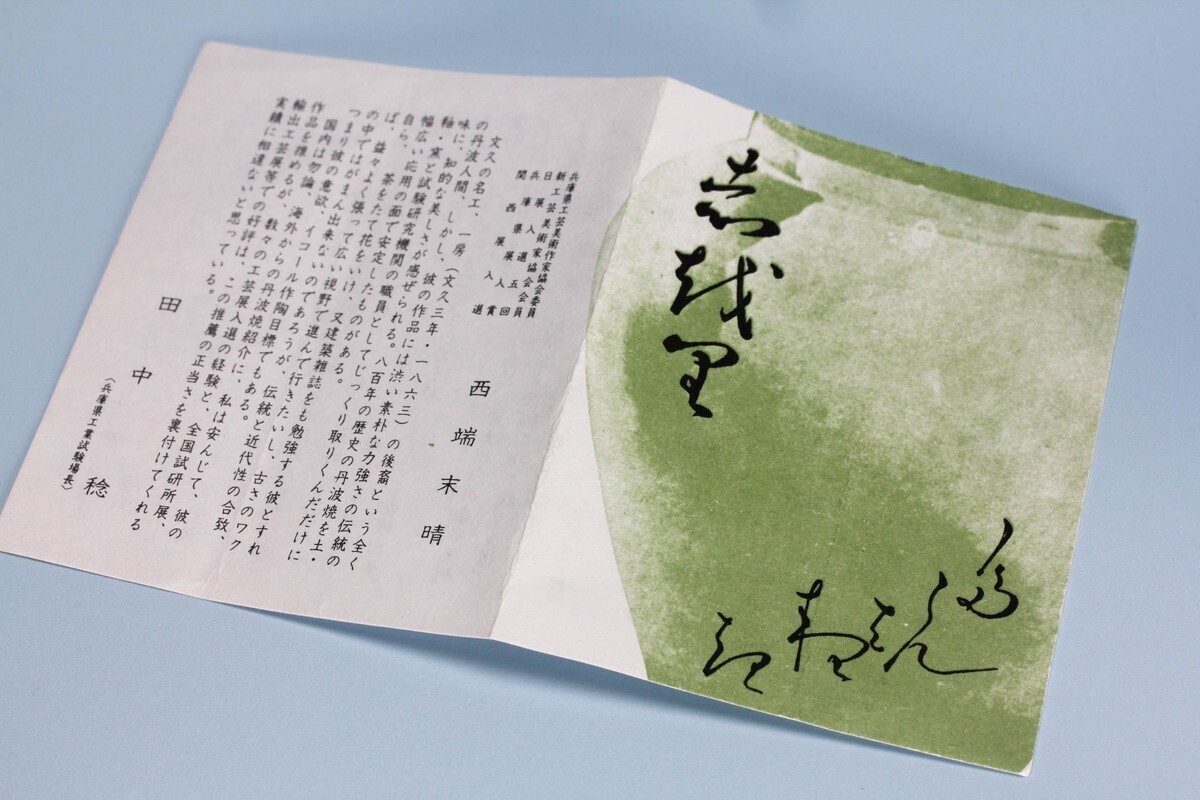 兵庫県工芸美術作家協会委員
新工芸美術家協会会員
日展入選五回
兵庫県展入賞
関西展入選
西端末晴
文久の名工、一房（文久三年・一八六三）の後裔という全く
の丹波人間、しかし、彼の作品には渋い素朴な力強さの伝統の
味に、知的な美しさが感ぜられる。八百年の歴史の丹波焼を土・
釉・窯と試験研究機関の職員としてじっくり取りくんだだけに
幅広い応用の面で安定したものがある。
自ら、茶をたて花をいけ、又建築雑誌をも勉強する彼とすれ
ば、益々よく張って広い視野で進んで行きたいし、古さのワク
の中ではがまん出来ないのであろうが、伝統と近代性の合致、
つまり彼の意欲、イコール作陶目標でもある。
国内は勿論、海外からの丹波焼紹介に、私は安んじて、彼の
作品を推めるが、数々の工芸展入選の経験と、全国試研所展、
輸出工芸展等での好評は、この推薦の正当さを裏付けてくれる
実績に相違ないと思っている。
田中稔
（兵庫県工業試験場長）